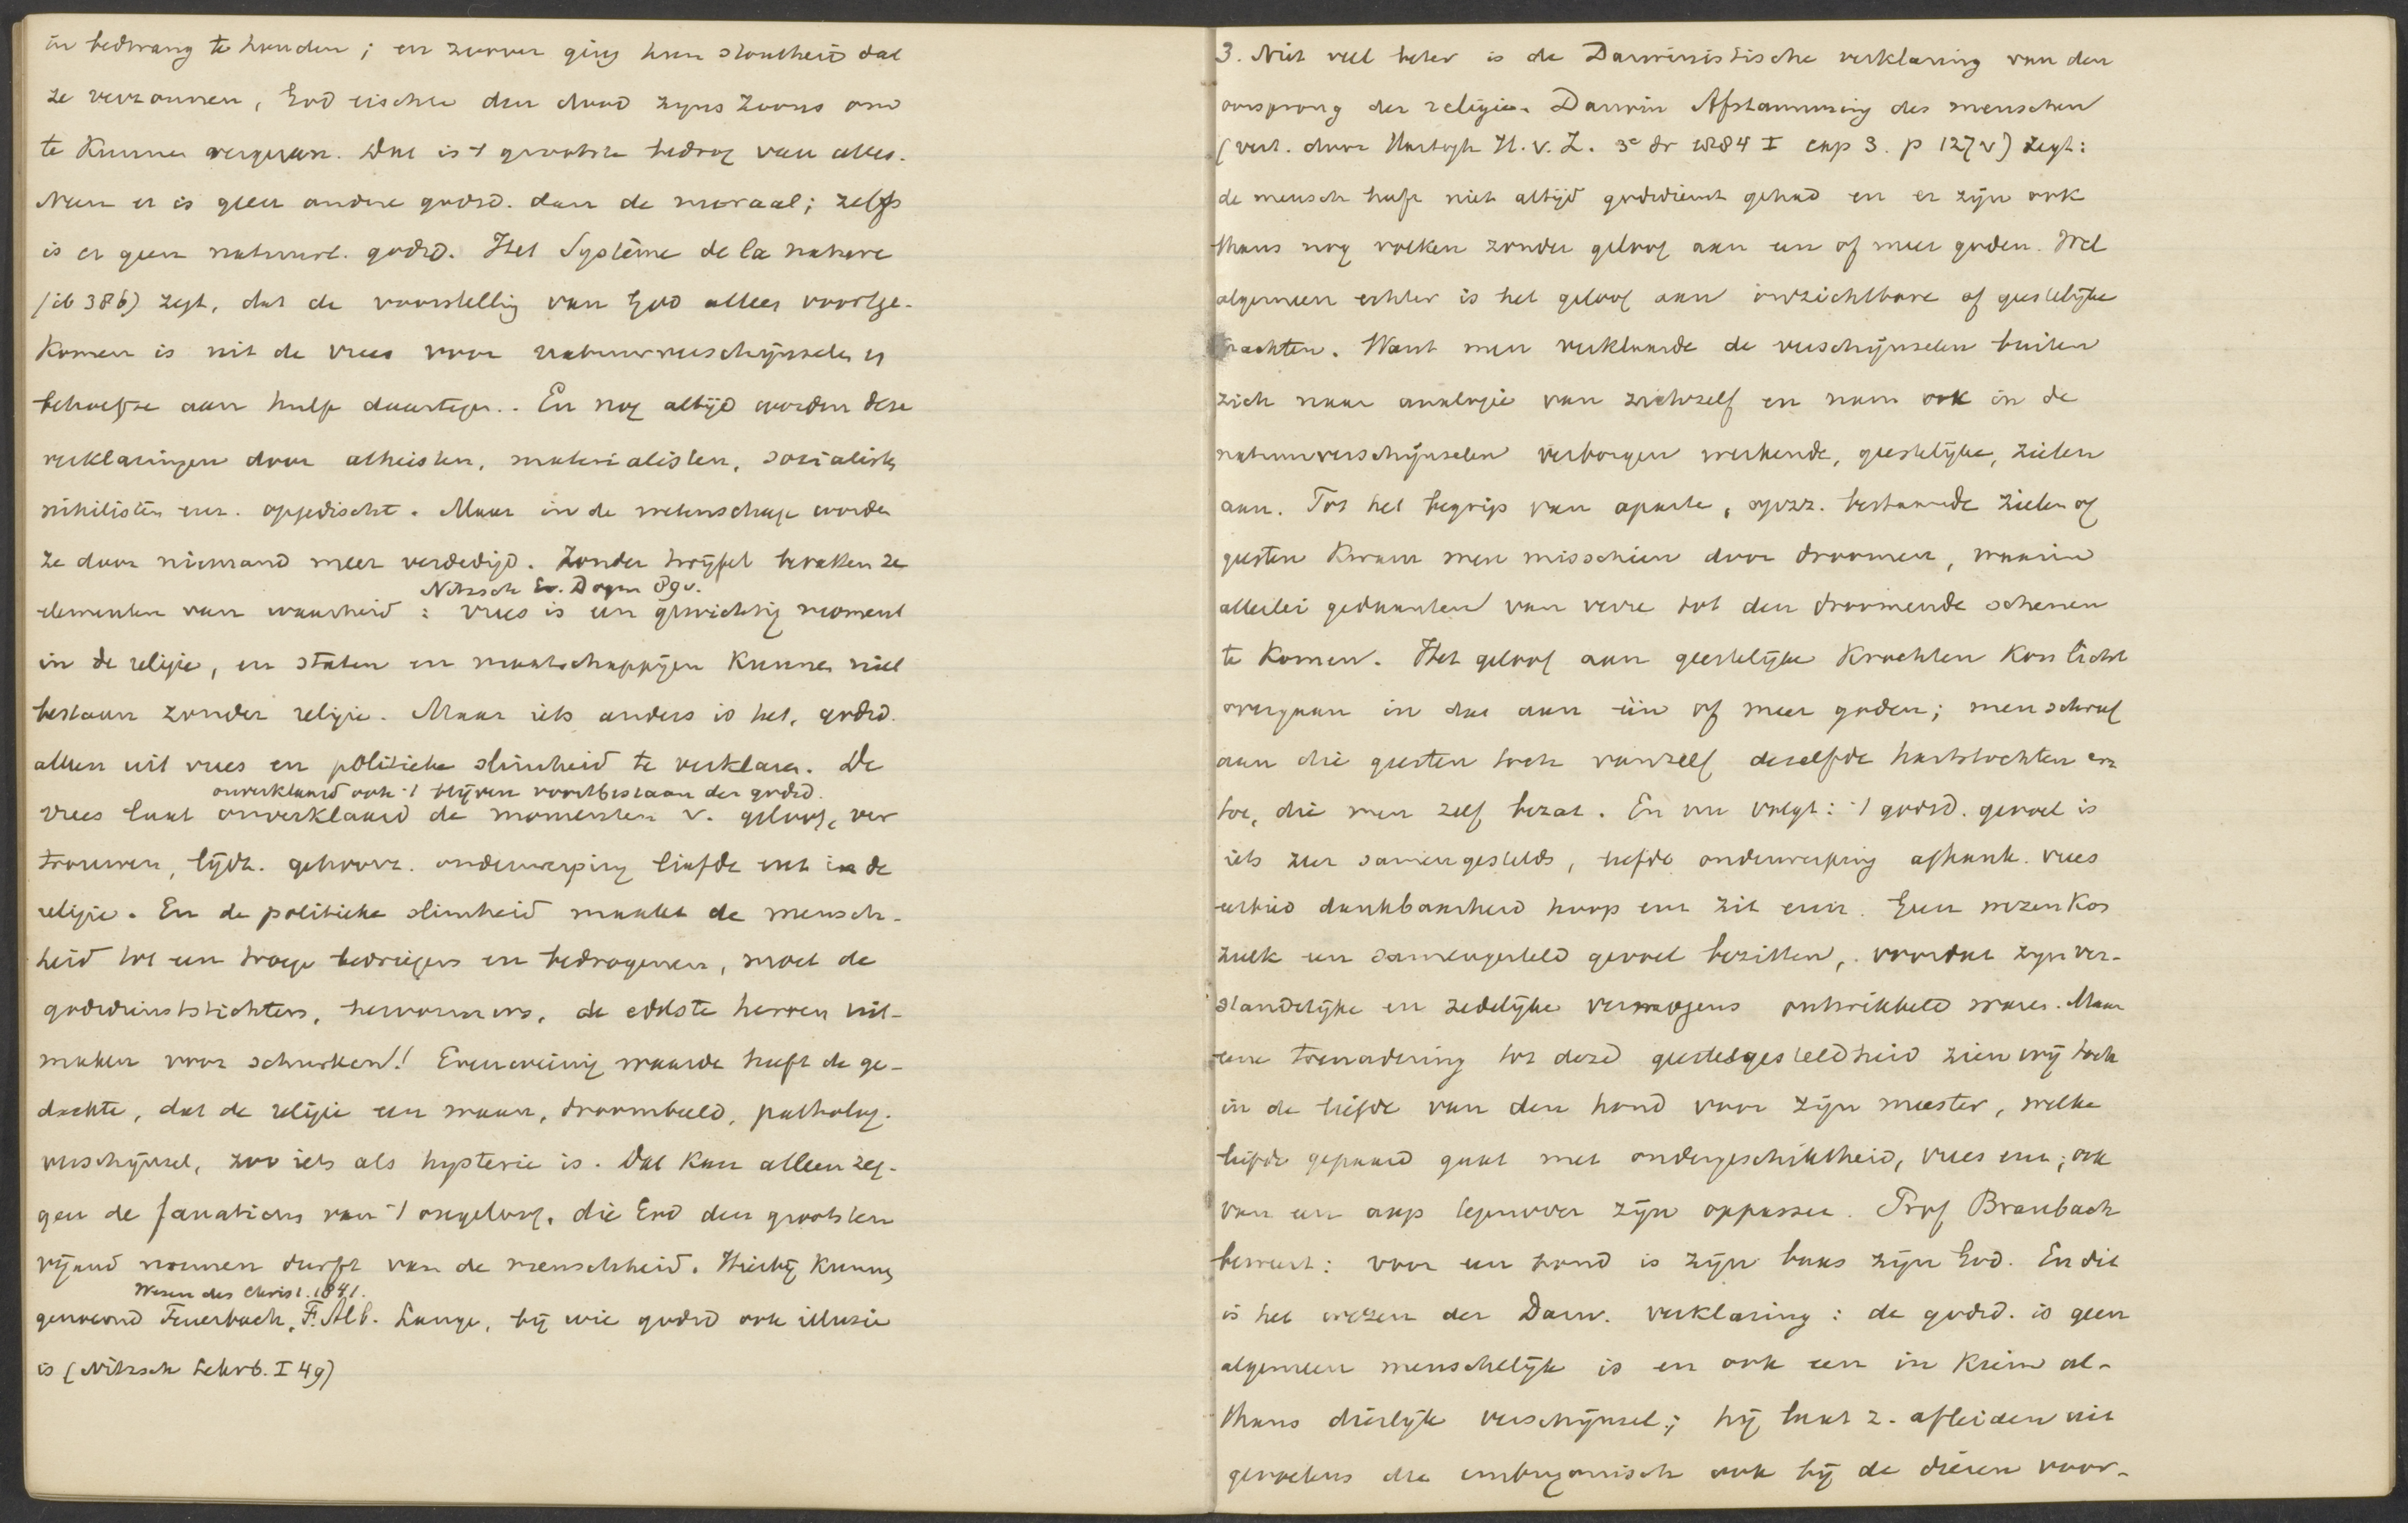 in bedwang te houden; en zoover ging hun stoutheid dat
ze verzonnen, God eischte den dood zijns Zoons om
te kunnen vergeven. Dat is 't grootste bedrog van alles.
Neen er is geen andere godsd. dan de moraal; zelfs
is er geen natuurl. godsd. Het Système de la nature
(ib 386) zegt, dat de voorstelling van God alleen voortge-
komen is uit de vrees voor natuurverschijnselen en
behoefte aan hulp daartegen.. En nog altijd worden deze
verklaringen door atheisten, materialisten, socialisten
nihilisten enz. opgedischt. Maar in de wetenschap worden
ze door niemand meer verdedigd. Zonder twijfel bevatten ze
Nitzsch Ev. Dogm 89v.
elementen van waarheid: vrees is een gewichtig moment
in de religie, en staten en maatschappijen kunnen niet
bestaan zonder religie. Maar iets anders is het, godsd.
alleen uit vrees en politieke slimheid te verklaren. De
onverklaard ook 't blijven voortbestaan der godsd.
vrees laat onverklaard de momenten v. geloof, ver
trouwen, lijdz. gehoorz. onderwerping liefde enz in de
religie. En de politieke slimheid maakt de mensch-
heid tot een troep bedriegers en bedrogenen, moet de
godsdienststichters, hervormers, de edelste heroen uit-
maken voor schurken! Evenweinig waarde heeft de ge-
dachte, dat de religie een waan, droombeeld, patholog.
verschijnsel, zoo iets als hysterie is. Dat kan alleen zeg-
gen de fanaticus van 't ongeloof, die God den grootsten
vijand noemen durft van de menschheid. Hierbij kunnen
Wesen des Christ. 1841.
genoemd Feuerbach, F. Alb. Lange, bij wie godsd ook illusie
is (Nitzsch Lehrb. I 49)
3. Niet veel beter is de Darwinistische verklaring van den
oorsprong der religie. Darwin Afstamming des menschen
(vert. door Hartogh H. v. Z. 3e dr 1884 I cap 3. p 127v) zegt:
de mensch heeft niet altijd godsdienst gehad en er zijn ook
thans nog volken zonder geloof aan een of meer goden. Wel
algemeen echter is het geloof aan onzichtbare of geestelijke
krachten. Want men verklaarde de verschijnselen buiten
zich naar analogie van zichzelf en nam ook in de
natuurverschijnselen verborgen werkende, geestelijke, zielen
aan. Tot het begrip van aparte, opzz. bestaande zielen of
geesten kwam men misschien door droomen, waarin
allerlei gedaanten van verre tot den droomende schenen
te komen. Het geloof aan geestelijke krachten kon licht
overgaan in dat aan één of meer goden; men schreef
aan die geesten toch vanzelf dezelfde hartstochten enz
toe, die men zelf bezat. En nu volgt: 't godsd. gevoel is
iets zeer samengestelds, liefde onderwerping afhank. vrees
eerbied dankbaarheid hoop enz zit erin. Geen wezen kon
zulk een samengesteld gevoel bezitten, voordat zijn ver-
standelijke en zedelijke vermogens ontwikkeld waren. Maar
eene toenadering tot deze geestesgesteldheid zien wij toch
in de liefde van den hond voor zijn meester, welke
liefde gepaard gaat met ondergeschiktheid, vrees enz; ook
van een aap tegenover zijn oppasser. Prof Braubach
beweert: voor een hond is zijn baas zijn God. En dit
is het wezen der Darw. verklaring: de godsd. is geen
algemeen menschelijk is en ook een in kiem al-
thans dierlijk verschijnsel; hij laat z. afleiden uit
gevoelens die embryonisch ook bij de dieren voor-